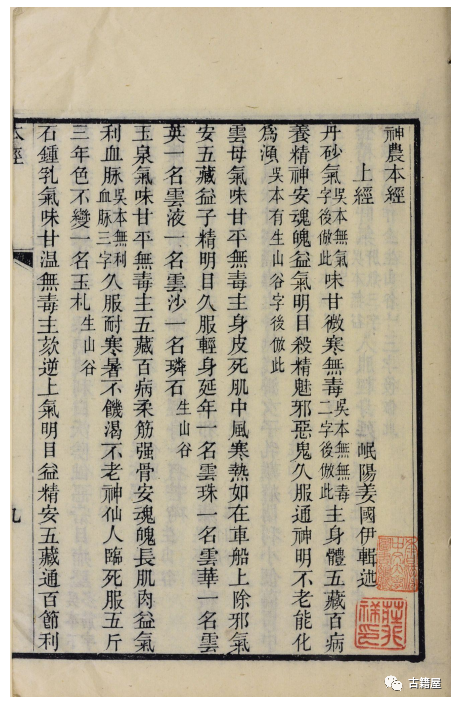 神農本經
上經　岷陽姜國伊輯述
丹砂氣吳本無氣字後倣此味甘微寒無毒吳本無無毒二字後倣此主身體五藏百病
養精神安魂魄益氣明目殺精魅邪惡鬼久服通神明不老能化
為澒吳本有生山谷字後倣此
雲母氣味甘平無毒主身皮死肌中風寒熱如在車船上除邪氣
安五藏益子精明目久服輕身延年一名雲珠一名雲華一名雲
英一名雲液一名雲沙一名璘石生山谷
玉泉氣味甘平無毒主五藏百病柔筋强骨安魂魄長肌肉益氣
利血脉吳本無利血脉三字久服耐寒暑不饑渴不老神仙人臨死服五斤
三年色不變一名玉札生山谷
石鍾乳氣味甘温無毒主欬逆上氣明目益精安五藏通百節利
本經
九
古籍屋